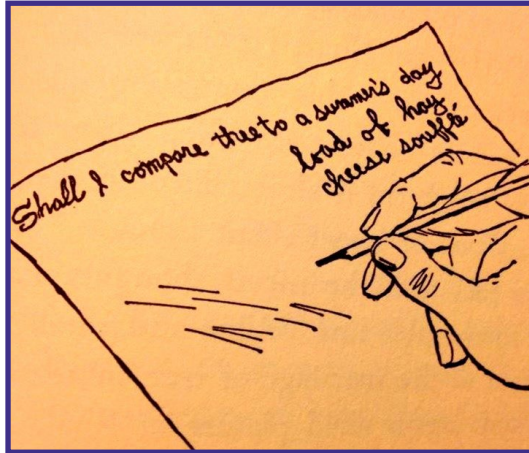 Shall I compare thee to a summer's day
load of hay
cheese soufflé